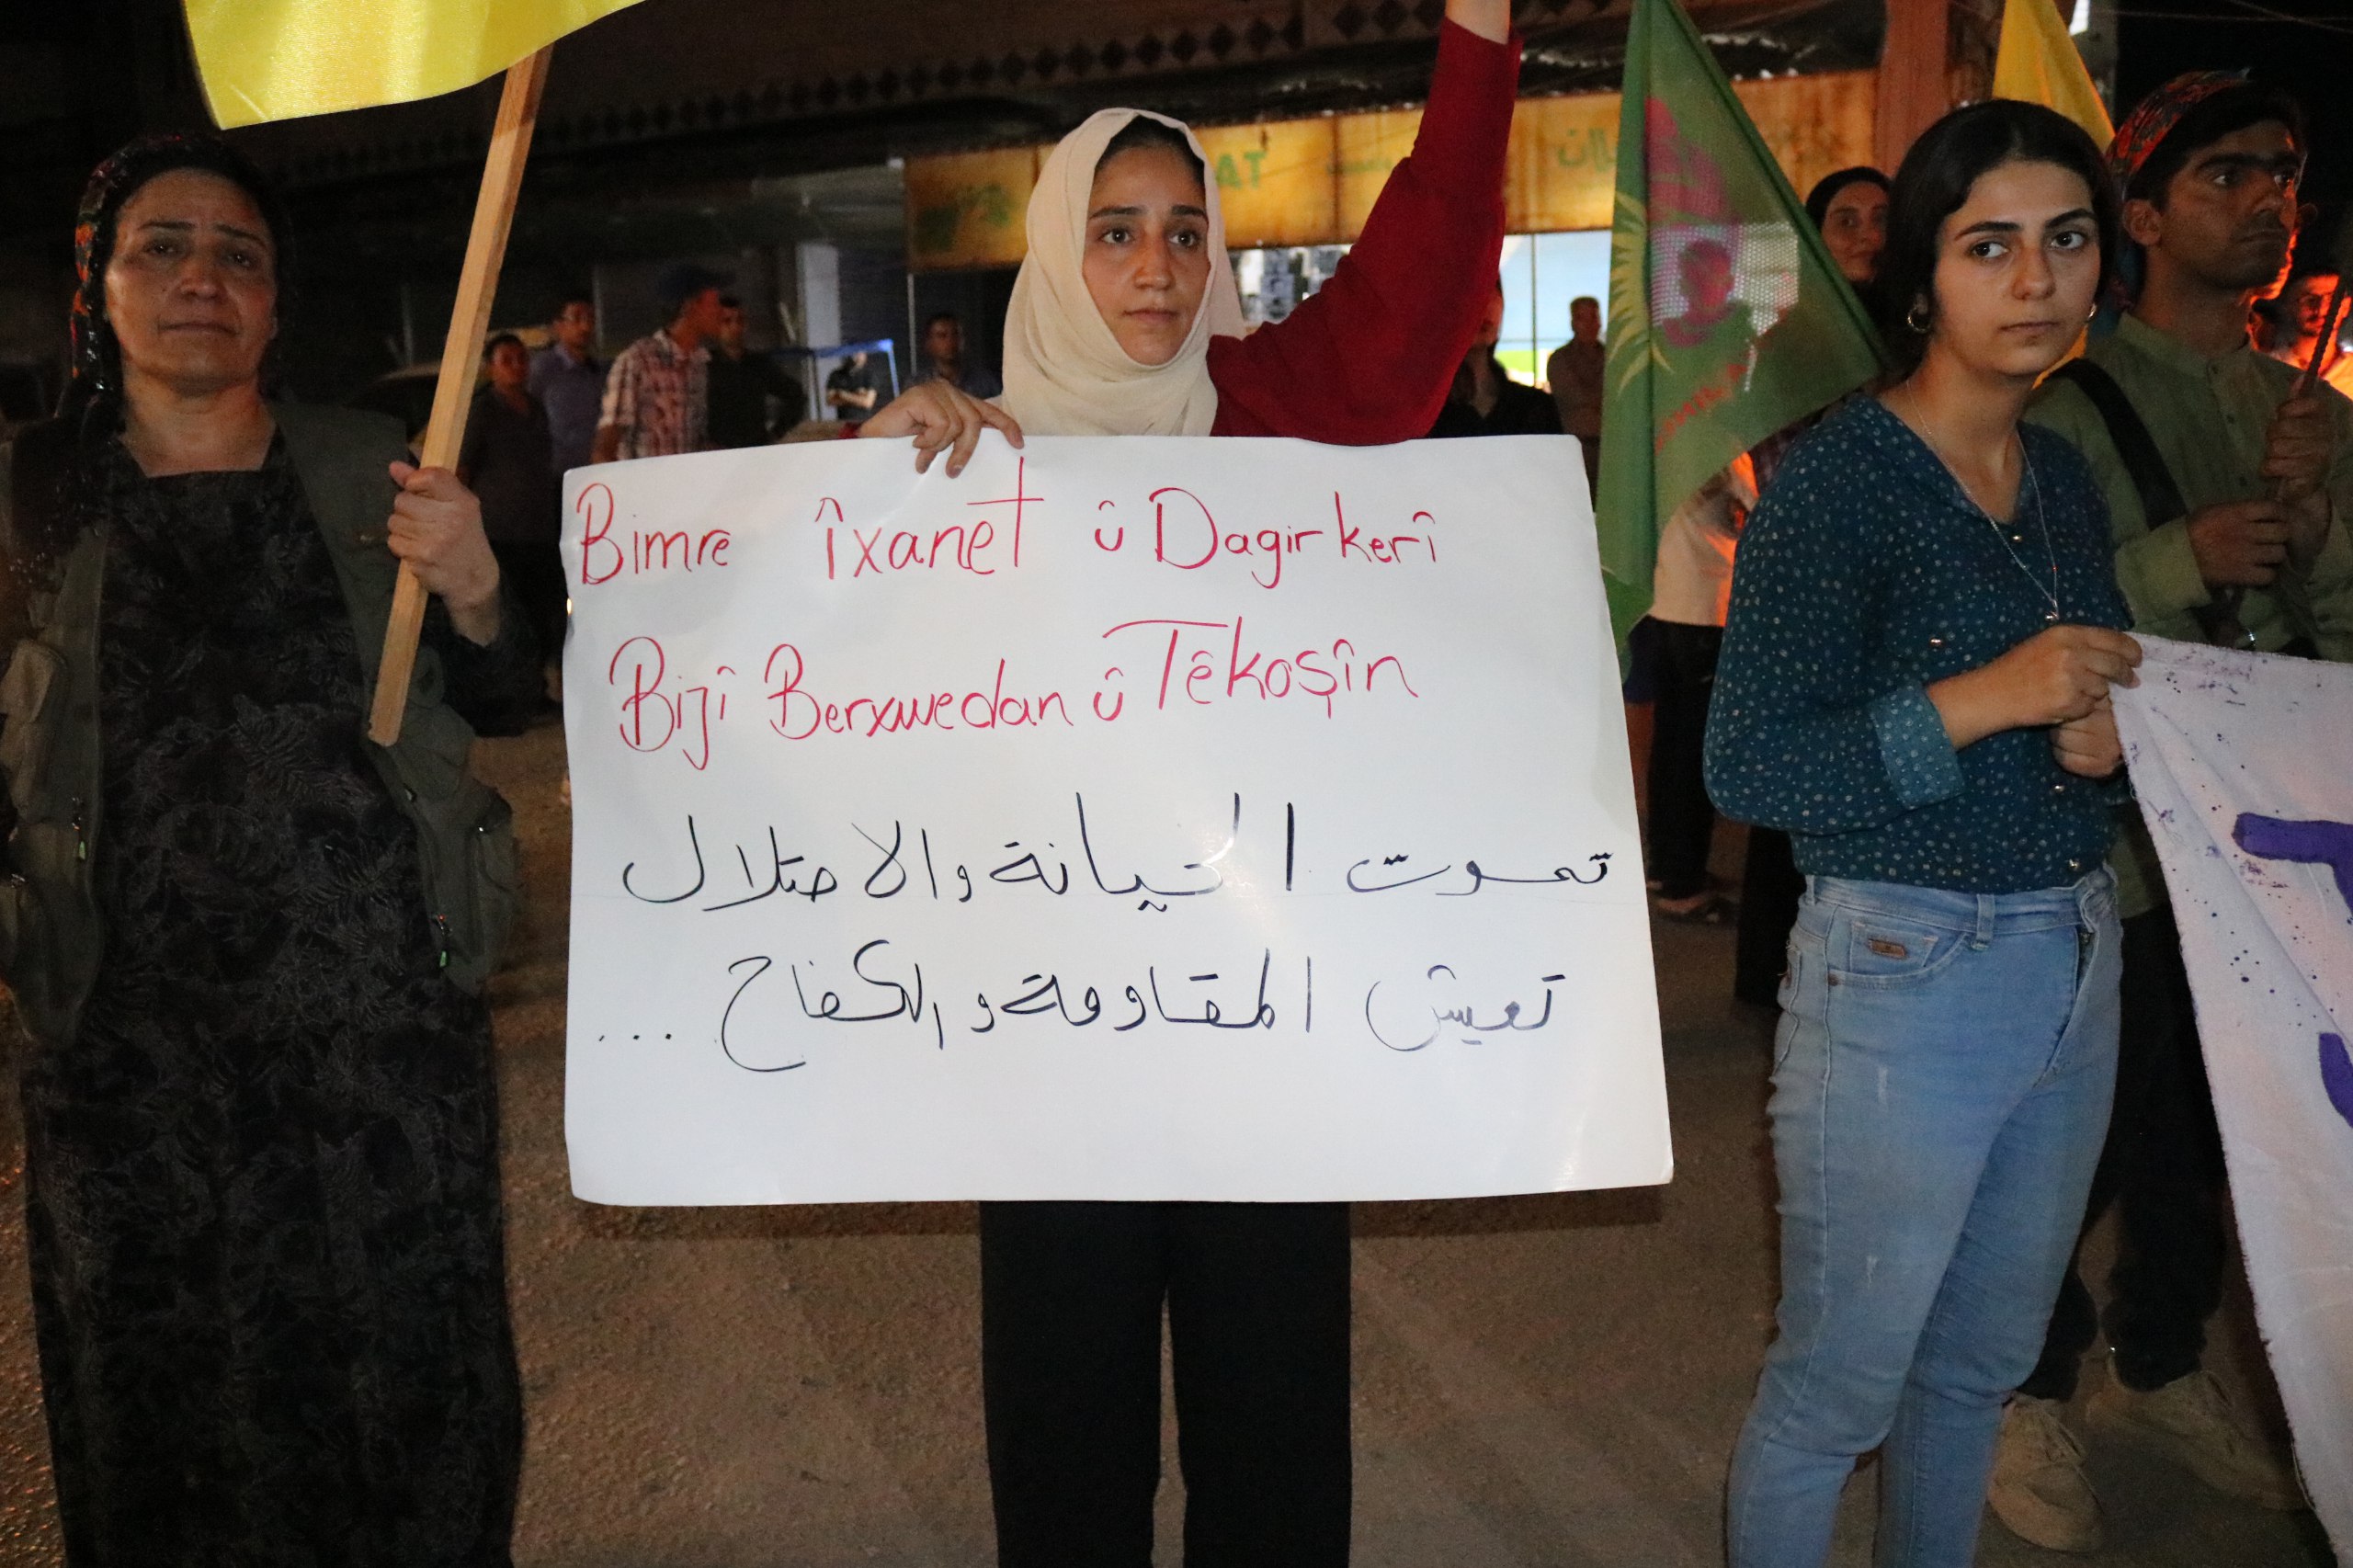 Bimre îxanet û Dagirkerî
Bijî Berxwedan û Têkoşîn
تموت الخيانة والاحتلال
تعيش المقاومة والكفاح ...